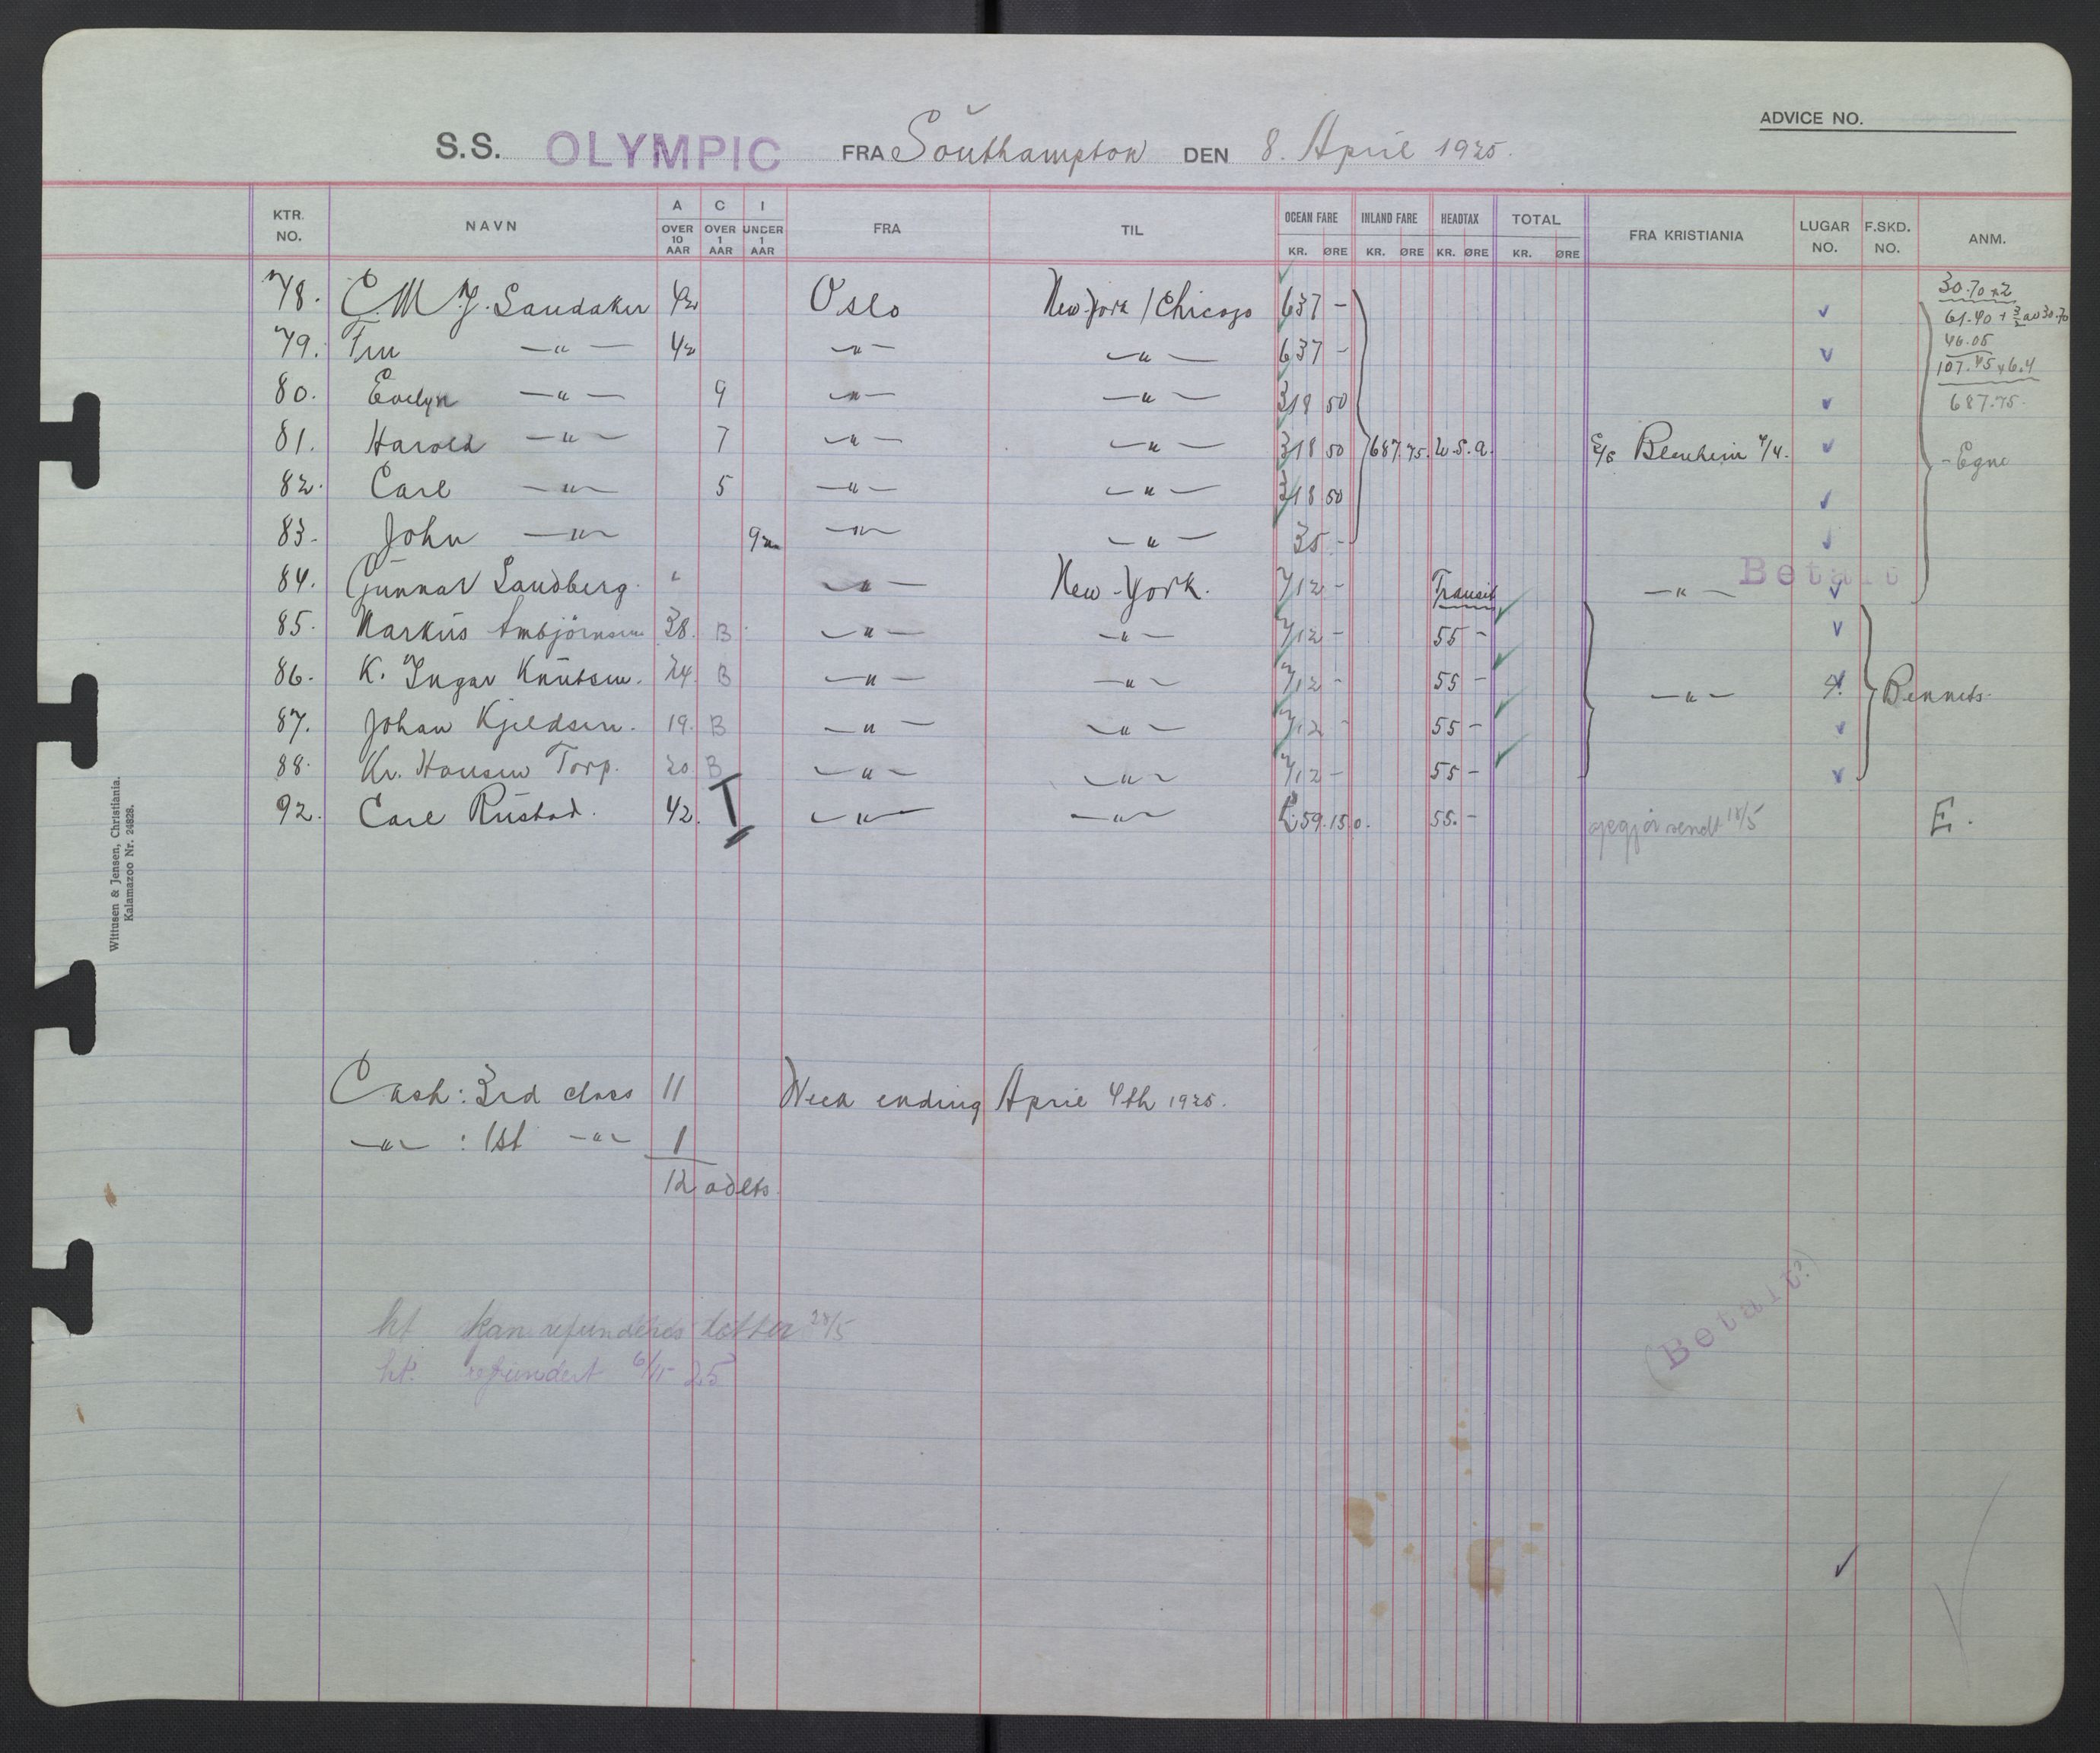 ADVICE NO.
S.S. OLYMPIC FRA Southampton DEN 8. April 1925.
KTR. NO. NAVN A OVER 10 AAR C OVER 1 AAR I UNDER 1 AAR FRA TIL OCEAN FARE KR. ØRE INLAND FARE KR. ØRE HEADTAX KR. ØRE TOTAL KR. ØRE FRA KRISTIANIA LUGAR NO. F.SKD. NO. ANM.
30.70 x 2
78. C. M. J. Sandaker 42 Oslo New York / Chicago 637 - 61.40 + 3/2 av 30.70
79. Fru —"— 42 —"— —"— 637 - 46.05
107.45 x 6.4
80. Evelyn —"— 9 —"— —"— 318 50 687.75.
81. Harold —"— 7 —"— —"— 318 50 687.75. U.S.A. S/S Blenheim 4/4. - Egne
82. Carl —"— 5 —"— —"— 318 50
83. John —"— —"— —"— 35 -
84. Gunnar Sandberg. " —"— New-York. 712 - Transit —"— Betalt
85. Markus Ambjörnsen 38. B —"— —"— 712 - 55 -
86. K. Ingar Knutsen. 24. B —"— —"— 712 - 55 - —"— Bennets.
87. Johan Kjeldsen. 19. B —"— —"— 712 - 55 -
88. Kr. Hansen Torp. 20. B —"— —"— 712 - 55 -
92. Carl Rustad. 42. I —"— —"— £ 59.15.0. 55. - sendt 18/5 E.
Wittusen & Jensen, Christiania.
Kalamazoo Nr. 24828.
Cash: 3rd class 11 Week ending April 4th 1925.
—"— : 1st —"— 1
12 adlts
ht kan refunderes letter 28/5
ht. refundert 6/11-25
(Betalt?)